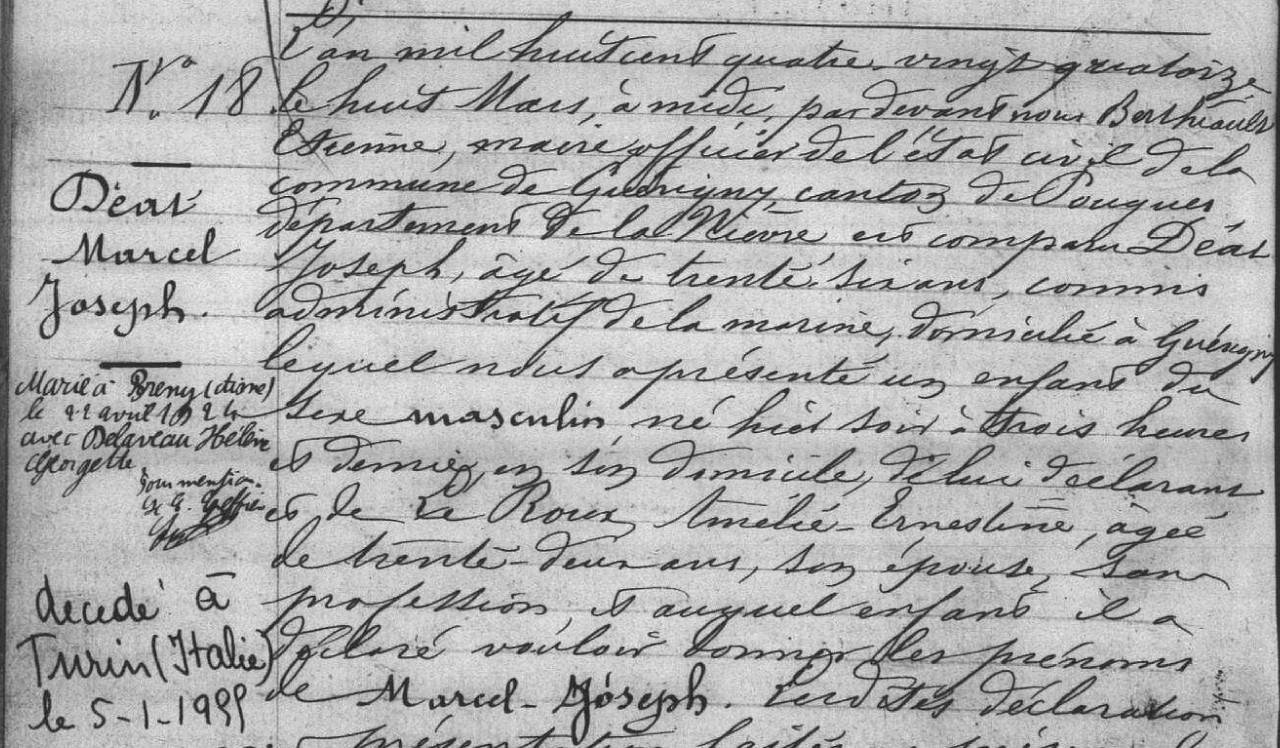 No 18
Déat
Marcel
Joseph.
Marié à Breny (Aisne)
le 22 avril 1924
avec Delaveau Hélène
Georgette
Pour mention.
décédé à
Turin (Italie)
le 5-1-1955
L'an mil huit cent quatre-vingt quatorze
le huit Mars, à midi, par devant nous Berthiault
Etienne, maire officier de l'état civil de la
commune de Guérigny, canton de Pougues
département de la Nièvre est comparu Déat
Joseph, âgé de trente-six ans, commis
administratif de la marine, domicilié à Guérigny
lequel nous a présenté un enfant du
sexe masculin né hier soir à trois heures
et demie, en son domicile, de lui déclarant
et de Le Roux Amélie-Ernestine, âgée
de trente-deux ans, son épouse, sans
profession, et auquel enfant il a
déclaré vouloir donner les prénoms
de Marcel-Joseph. Lesdites déclaration
présentation faites